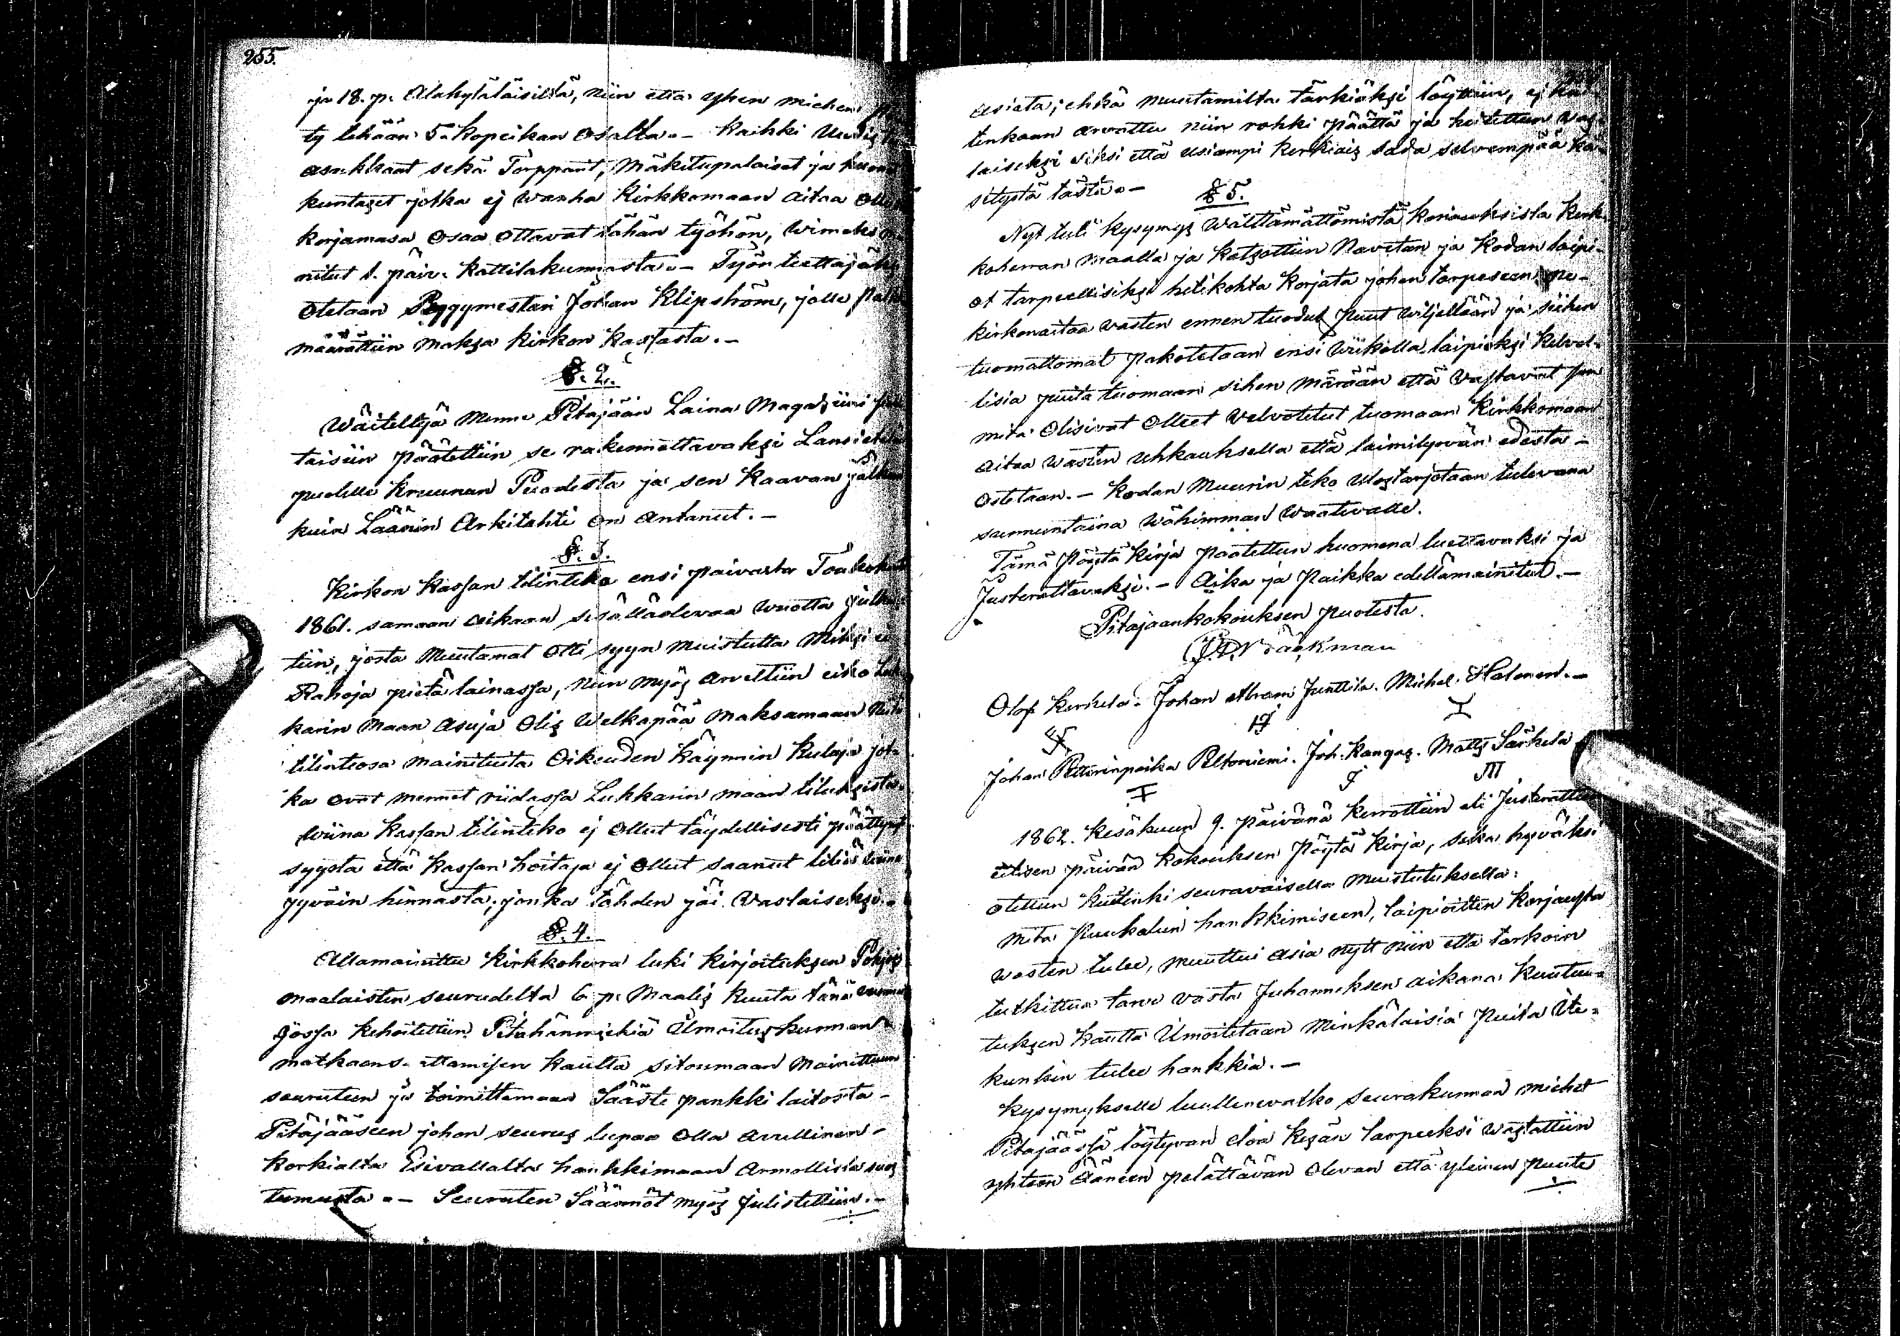 255.
ja 18. p. Alakyläläisiltä, niin että yhen miehen
ty lehään 5. Kopeikan osalta. – Kaikki Uudis
asukkaat sekä Torpparit, Mäkitupalaiset ja huone
kuntaset jotka ej wanha Kirkkomaan aitaa
korjamasa osaa ottavat tähän työhön, wimeksi
nitut 1. päiv. Kattilakunnasta. – Työn teettäjäksi
otetaan Byggmestari Johan Klipström, jolle
määrättiin maksa kirkon Kassasta. –
§. 2.
Wäiteltyä Menne Pitäjään Laina Magasiini
taisiin päätettiin se rakennettavaksi Lansi
puolelle Kruunun Puodista ja sen Kaavan jälkeen
kuin Läänin Arkitehti on antanut. –
§. 3.
Kirkon Kassan tilinteko ensi päivästä Toukokuuta
1861. samaan aikaan sisälläolevaa wuotta julki
tiin, josta Muutamat otti syyn muistutta Miksi ei
Rahoja pietä lainassa, niin myös arveltiin eikö Luk
karin Maan asuja olis Welkapää Maksamaan
tilinteosa mainituita Oikeuden Käynnin Kuluja jot-
ka ovat mennet riidassa Lukkarin maan tiluksista.
Wiina Kassan tilinteko ej ollut täydellisesti päättynyt
syystä että Kassan hoitaja ej ollut saanut tiliä wiina
jyväin hinnasta; jonka tähden jäi Vastaiseksi. –
§. 4.
Allamainittu Kirkkoherra luki Kirjoituksen Pohjois
maalaisten seurudelta 6 p. Maalis Kuuta tänä vuonna
jossa Kehoitettiin Pitähänmiehiä Ilmoitus kunnan
matkaans. ettamisen Kautta sitoumaan Mainittuun
seuruteen ja toimittamaan Sääste pankki laitosta –
Pitäjääseen johon seurus lupaa olla avullinen –
Korkialta Esivallalta hankkimaan Armollista suos
tumusta. – Seuruten Säännöt myös Julistettiin. –
asiata; ehkä muutamilta tärkiäksi löyttiin, ej kui-
tenkaan arvattu niin rohki päättä ja heitettiin vas-
taiseksi siksi että usiampi kerkiais sada selvempää kä-
sitystä tästä. –
§ 5.
Nyt tuli kysymys Wälttämättömistä Korjauksista Kirk-
koherran maalla ja Katsottiin Navetan ja Kodan laipi-
ot tarpeellisiksi hetikohta korjata johon tarpeseen ne-
kirkonaitaa wasten ennen tuodut puut wiljellään ja siihen
tuomattomat pakotetaan ensi wiikolla laipioksi Kelvol-
lisia puita tuomaan siihen Määrään että vastavat sen
mitä Olisivat Olleet Velvotetut tuomaan Kirkkomaan
aitaa wasten uhkauksella että laiminlyovän edestä –
ostetaan. – Kodan Muurin teko Ulostarjotaan tulevana
sunnuntaina Wähimmän Waativalle.
Tämä Pöytä Kirja päätettiin huomena luettavaksi ja
Justerattavaksi. – Aika ja Paikka edellämainitut. –
Pitäjäänkokouksen puolesta.
Olof Kerkelä. Johan Abram Junttila. Michel Halonen. –
Johan Petterinpoika Peltoniemi. Joh. Kangas. Matts Särkelä
1862. Kesäkuun 9. päivänä Kerrottiin eli Justerattiin
eilisen päivän Kokouksen Pöytä Kirja, sekä hyväksi
otettiin Kuitenki seuravaisella Muistutuksella:
mitä Puukalun hankkimiseen, laipioitten Korjausta
wasten tulee, muuttui asia nytt niin että tarkoin
tutkittua tarve vasta Juhanneksen aikana Kuutuu-
tuksen Kautta Ilmoitetaan Minkälaisia Puita Ite-
kunkin tulee hankkia. –
Kysymykselle luulleevatko seurakunnan miehet
Pitäjäässä löytyvän eloa Kesän tarpeeksi wastattiin
yhteen Ääneen pelättävän Olevan että yleinen puute